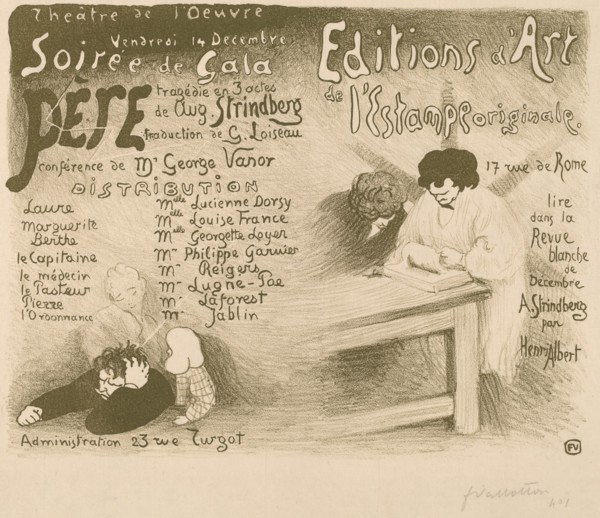 Théâtre de l'Oeuvre
Vendredi 14 Décembre
Soirée de Gala
PÈRE
tragédie en 3 actes
de Aug. Strindberg
traduction de G. Loiseau
conférence de Mr George Vanor
DISTRIBUTION
Laure Melle Lucienne Dorsy
Marguerite Melle Louise France
Berthe Melle Georgette Loyer
le Capitaine Mr Philippe Garnier
le médecin Mr Reigers
le Pasteur Mr Lugne-Poe
Pierre Mr Laforest
l'Ordonnance Mr Jablin
Administration 23 rue Turgot
Editions d'Art
de l'Estampe originale.
17 rue de Rome
lire
dans la
Revue
blanche
de
Décembre
A. Strindberg
par
Henri Albert
FV
f Vallotton